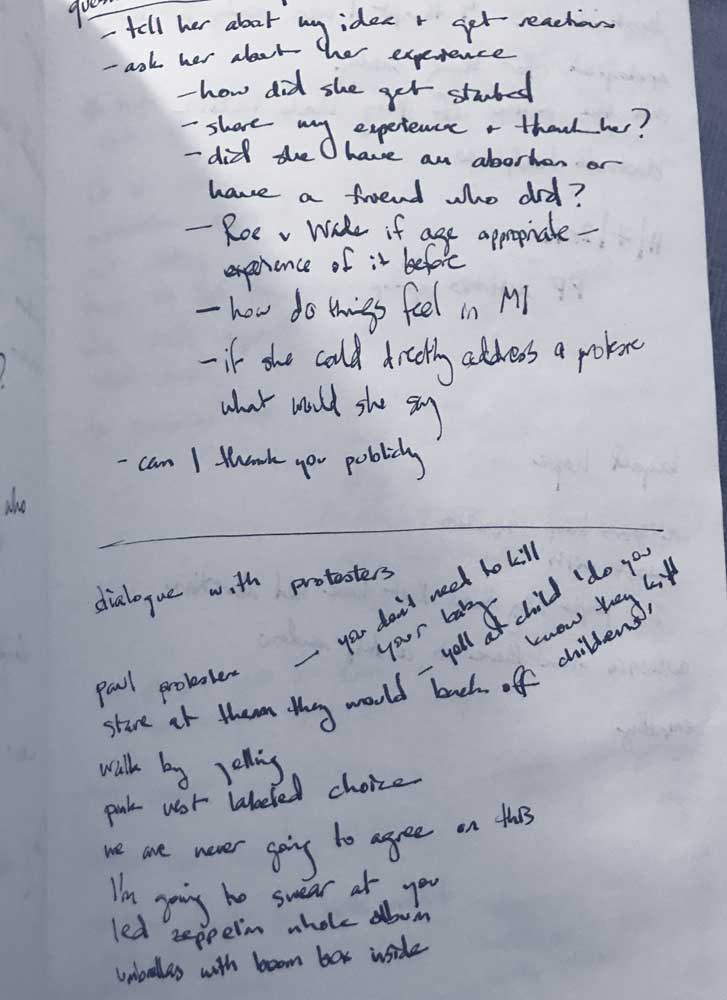 ques
- tell her about my idea + get reaction
- ask her about her experience
- how did she get started
- share my experience + thank her?
- did she have an abortion or
have a friend who did?
- Roe v Wade if age appropriate -
experience of it before
- how do things feel in MI
- if she could directly address a
what would she say
- can I thank you publicly
who
dialogue with protesters
- you don't need to kill
your baby
paul protester
- yell at child 'do you
know they kill
children'
stare at them they would back off
walk by yelling
pink vest labeled choice
we are never going to agree on this
I'm going to swear at you
led zeppelin whole album
umbrellas with boom box inside